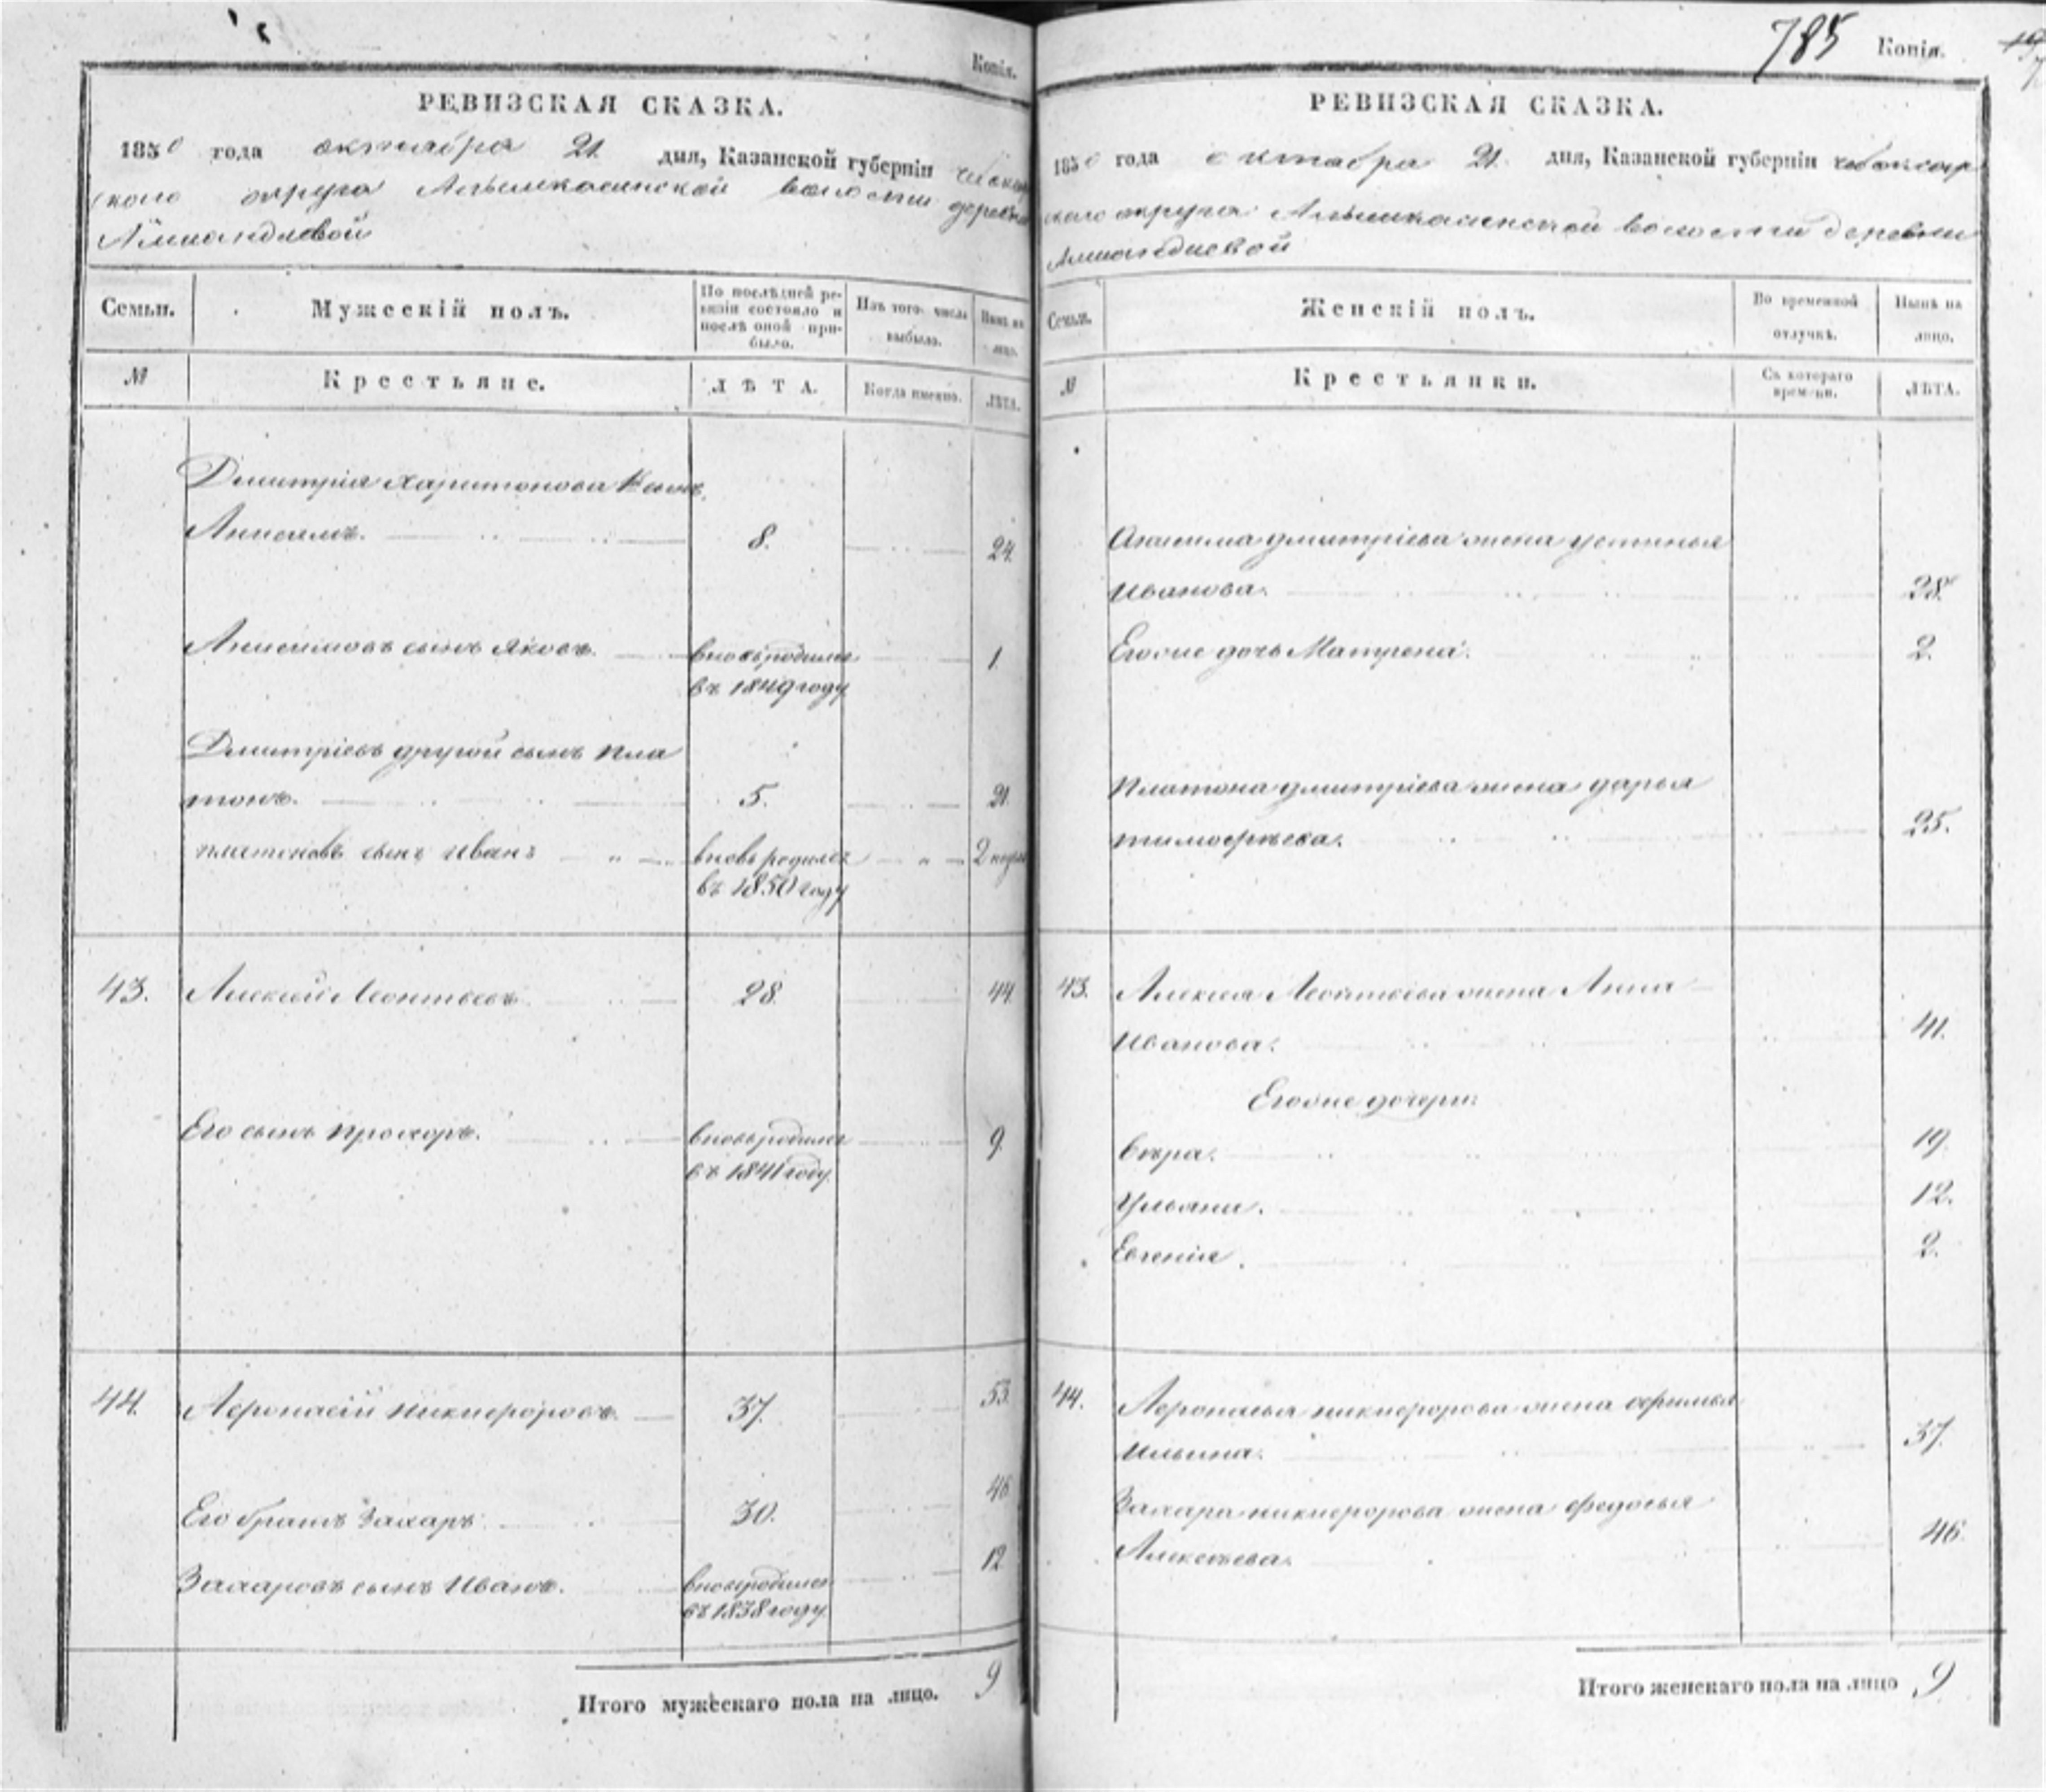 Копія.
РЕВИЗСКАЯ СКАЗКА.
1850 года октября 21 дня, Казанской губерніи чебоксар
скаго округа Алымкасинской волости деревни
Копія.
785
РЕВИЗСКАЯ СКАЗКА.
1850 года октября 21. дня, Казанской губерніи чебоксар
скаго округа Алымкасинской волости деревни
Семьи.
Мужескій полъ.
По послѣдней ре-
визіи состояло и
послѣ оной при-
было.
Изъ того числа
выбыло.
Нынѣ на
лицо.
№
Крестьяне.
ЛѢТА.
Когда именно.
ЛѢТА.
Дмитрія Харитонова 1й сынъ
Анисимъ. 8. 24.
Анисимовъ сынъ Яковъ. вновь родился 1.
въ 1849 году
Дмитріевъ другой сынъ Пла
тонъ. 5. 21.
Платоновъ сынъ Иванъ вновь родился 2 недѣл
въ 1850 году
43. Алексѣй Леонтьевъ 28. 44.
Его сынъ Прохоръ. вновь родился 9.
въ 1841 году.
44. Афонасій Никифоровъ. 37. 53.
Его братъ Захаръ 30. 46
Захаровъ сынъ Иванъ. вновь родился 12
въ 1838 году.
Итого мужескаго пола на лицо. 9
Семьи.
Женскій полъ.
Во временной
отлучкѣ.
Нынѣ на
лицо.
№
Крестьянки.
Съ котораго
времени.
ЛѢТА.
Анисима Дмитріева жена Устинья
Иванова. 28.
Его же дочь Матрена. 2.
Платона Дмитріева жена Дарья
Тимофѣева. 25.
43. Алексѣя Леонтьева жена Анна
Иванова. 41.
Его же дочери:
Вѣра. 19.
Ульяна. 12.
Евгенія. 2.
44. Афонасья Никифорова жена Офимья
Ильина. 37.
Захара Никифорова жена Федосья
Алексѣева. 46.
Итого женскаго пола на лицо 9